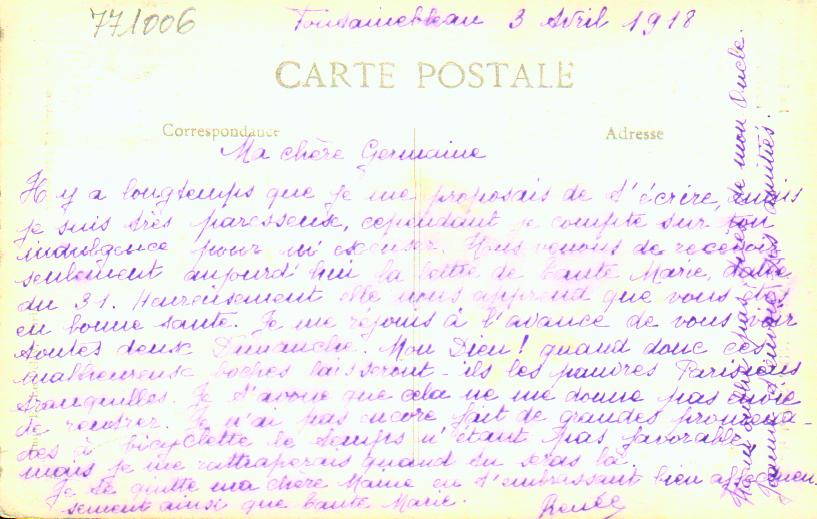 771006
Fontainebleau 3 Avril 1918
CARTE POSTALE
Correspondance
Adresse
Ma chère Germaine
Il y a longtemps que je me proposais de t'écrire, mais
je suis très paresseuse, cependant je compte sur ton
indulgence pour m'excuser. Nous venons de recevoir
seulement aujourd'hui la lettre de tante Marie, datée
du 31. Heureusement elle nous apprend que vous êtes
en bonne santé. Je me réjouis à l'avance de vous voir
toutes deux Dimanche. Mon Dieu! quand donc ces
malheureux boches laisseront-ils les pauvres Parisiens
tranquilles. Je t'avoue que cela ne me donne pas envie
de rentrer. Je n'ai pas encore fait de grandes promena-
des à bicyclette le temps n'étant pas favorable,
mais je me rattraperais quand tu seras là.
Je te quitte ma chère Maine en t'embrassant bien affectueu-
sement ainsi que tante Marie.
Renée
de mon Oncle.
amitiés.